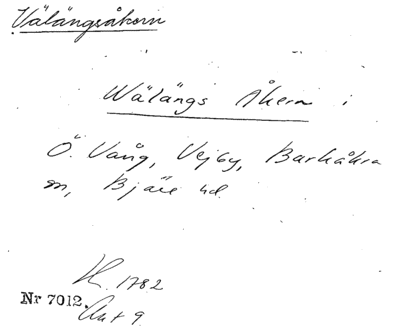 Välängsåkern
Wälängs Åkern i
Ö. Vång, Vejby, Barkåkra
sn, Bjäre hd.
H. 1782
Nr 7012. Akt 9